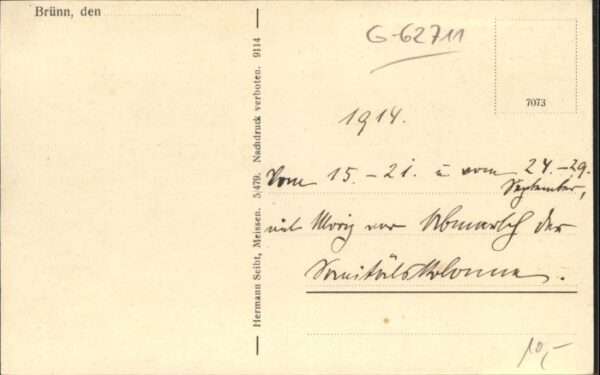 Brünn, den
G-62711
7073
Hermann Seibt, Meissen. 3/479. Nachdruck verboten. 9114
1914.
Vom 15. – 21. u vom 24. – 29.
September,
mit Moriz vor Abmarsch der
Sanitätskolonne.
10,–